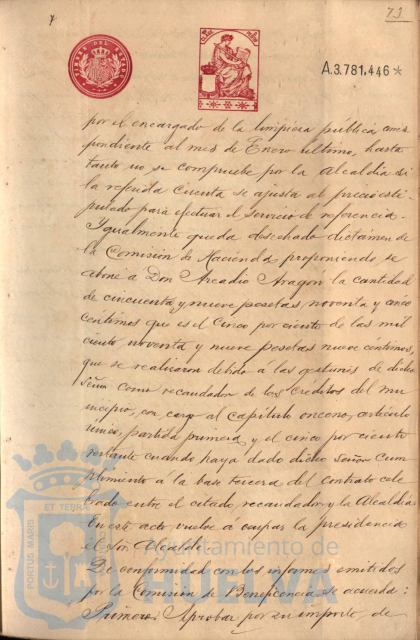 7
73
TIMBRE DEL ESTADO
A.3.781,446*
por el encargado de la limpieza pública corres
pondiente al mes de Enero último, hasta
tanto no se compruebe por la Alcaldía si
la referida cuenta se ajusta al precio esti-
pulado para efectuar el servicio de referencia.-
Ygualmente queda desechado dictámen de
la Comisión de Hacienda proponiendo se
abone á Don Arcadio Aragon la cantidad
de cincuenta y nueve pesetas noventa y cinco
centimos que es el cinco por ciento de las mil
ciento noventa y nueve pesetas nueve centimos,
que se realizaron debido á las gestiones de dicho
Señor como recaudador de los créditos del mu
nicipio, con cargo al capítulo onceno, artículo
único, partida primera, y el cinco por ciento
restante cuando haya dado dicho Señor cum
plimiento á la base tercera del contrato cele
brado entre el citado recaudador y la Alcaldía
En este acto vuelve á ocupar la presidencia
el Sor. Alcalde.
De conformidad con los informes emitidos
por la Comisión de Beneficencia se acuerda:
Primero: Aprobar por su importe de
PORTUS MARIS
ET TERRÆ
Ayuntamiento de
HUELVA